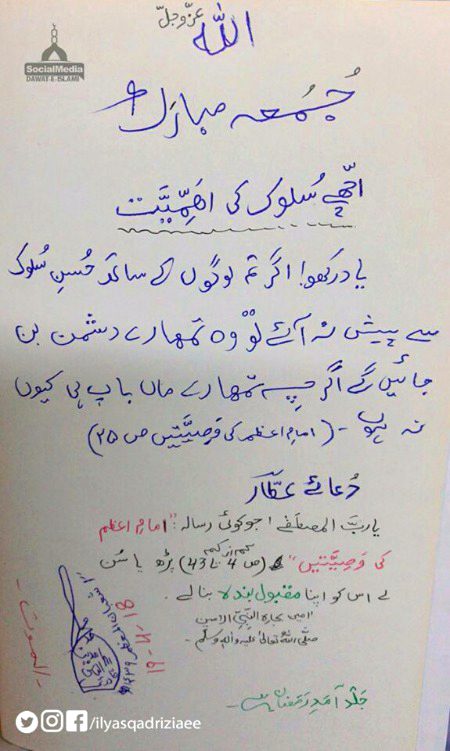 عزوجل
اللہ
SocialMedia
DAWAT-E-ISLAMI
جُمُعہ مبارک
اچّھے سُلوک کی اھَمِّیَّت
یاد رکھو! اگر تم لوگوں کے ساتھ حُسنِ سُلوک
سے پیش نہ آئے تو وہ تمھارے دشمن بن
جائیں گے اگرچِہ تمھارے ماں باپ ہی کیوں
نہ ہوں۔ (امامِ اعظم کی وَصِیَّتیں ص ۲۵)
دُعائے عطّار
یا ربَّ المصطَفٰے! جو کوئی رسالہ: "امامِ اعظم
کی وَصِیَّتیں" (کم از کم ص 4 تا 43) پڑھ یا سُن
لے اس کو اپنا مقبول بندہ بنا لے۔
اٰمین بجاہِ النَّبِیِّ الْاَمین
صلَّی اللہُ تعالٰی علیہ واٰلہٖ وسلَّم۔
۱۹-۴-18
الموت
جلد آمدِ رمضان ہے۔
/ilyasqadriziaee